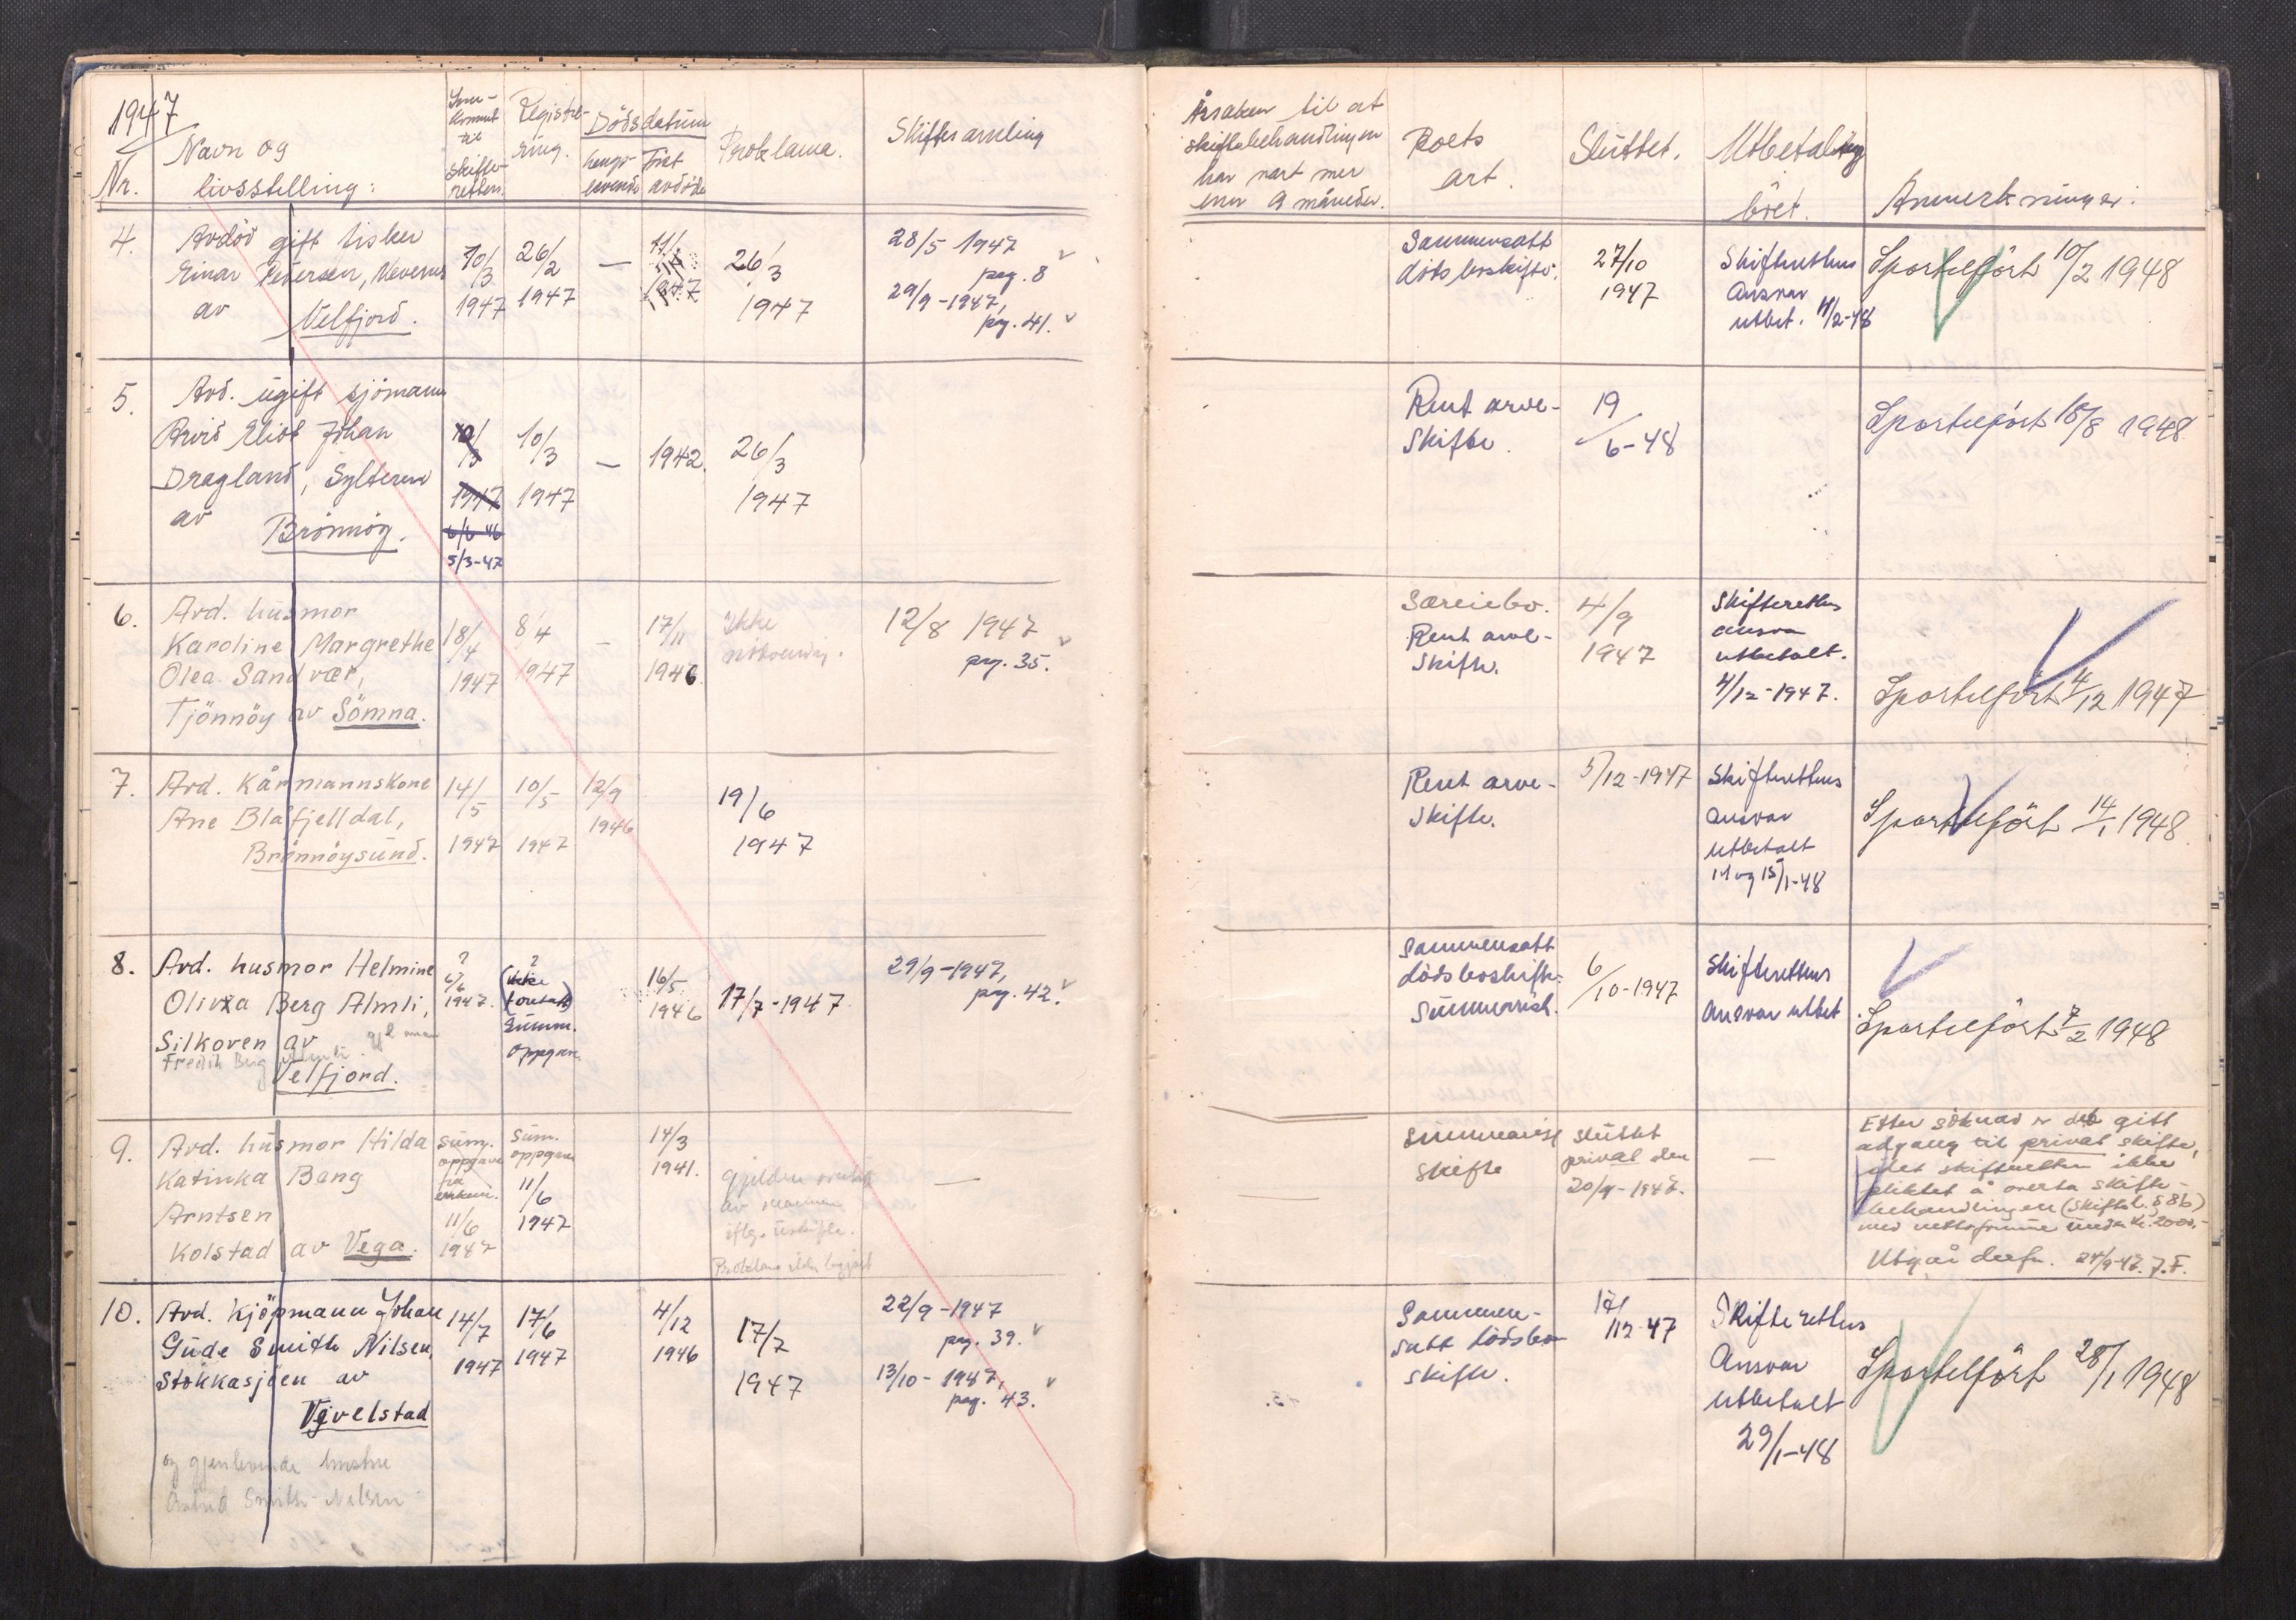 1947
Nr.
Navn og
livsstilling:
Inn-
kommet
til
skifte-
retten.
Registre-
ring.
Dödsdatum
lengst-
levende
först
avdöde
Proklama.
Skiftesamling
Årsaken til at
skiftebehandlingen
har vart mer
enn 9 måneder.
Boets
art.
Sluttet.
Utbetaling
bilet.
Anmerkninger:
4.
Avdöd gift fisker
Einar Pedersen,
av
Velfjord.
10/3
1947
26/2
1947
—
11/
1947
26/3
1947
28/5 1947
pag. 8
29/9-1947,
pag. 41.
Sammensatt
dödsboskifte.
27/10
1947
Skifterettens
ansvar
utbet. 11/2-48
Sportelfört 10/2 1948
5.
Avd. ugift sjömann
Arvid Eliot Johan
Dragland, Sylteren
av
Brönnöy.
10/3
1947
6/6 46
5/3-47
10/3
1947
—
1942.
26/3
1947
Rent arve-
skifte.
19
/6-48
Sportelfört 18/8 1948
6.
Avd. husmor
Karoline Margrethe
Olea Sandvær,
Tjönnöy av Sömna.
18/4
1947
8/4
1947
—
17/11
1946.
Ikke
nödvendig.
12/8 1947
pag. 35.
Særeiebo.
Rent arve-
skifte.
4/9
1947
Skifterettens
ansvar
utbetalt.
4/12-1947.
Sportelfört 4/12 1947
7.
Avd. Kårmannskone
Ane Blåfjelldal,
Brönnöysund.
14/5
1947
10/5
1947
12/9
1946
19/6
1947
Rent arve-
skifte.
5/12-1947
Skifterettens
ansvar
utbetalt
14 og 15/1-48
Sportelfört 14/1 1948
8.
Avd. husmor Helmine
Olivia Berg Almli,
Silkoven av
Fredrik Berg
Velfjord.
?
6/6
1947.
?
(ikke
foretatt)
Summ.
oppgave
16/5
1946
17/7-1947
29/9-1947,
pag. 42.
Sammensatt
dödsboskifte.
Summarisk.
6
/10-1947
Skifterettens
ansvar utbet
Sportelfört 7/2 1948
9.
Avd. husmor Hilda
Katinka Bang
Arntsen
Kolstad av Vega.
sum.
oppgave
fra
11/6
1947
sum.
oppgave
11/6
1947
14/3
1941.
Gjelden overtatt
av mannen
iflg.
Proklama ikke begjært
—
Summarisk
skifte
sluttet
privat den
20/9-1948.
—
Etter söknad er det gitt
adgang til privat skifte,
idet skifteretten ikke
pliktet å overta skifte-
behandlingen (Skiftel. § 86)
med nettoformue under kr. 2000,-
Utgår derfor. 24/9-48. J.F.
10.
Avd. Kjöpmann Johan
Gude Smith Nilsen,
Stokkasjöen av
Vevelstad
og gjenlevende hustru
Smith-Nilsen
14/7
1947
17/6
1947
4/12
1946
17/7
1947
22/9-1947
pag. 39.
13/10-1947,
pag. 43.
Sammen-
satt dödsbo
skifte.
12/
/12-47
Skifterettens
Ansvar
utbetalt
29/1-48
Sportelfört 28/1 1948